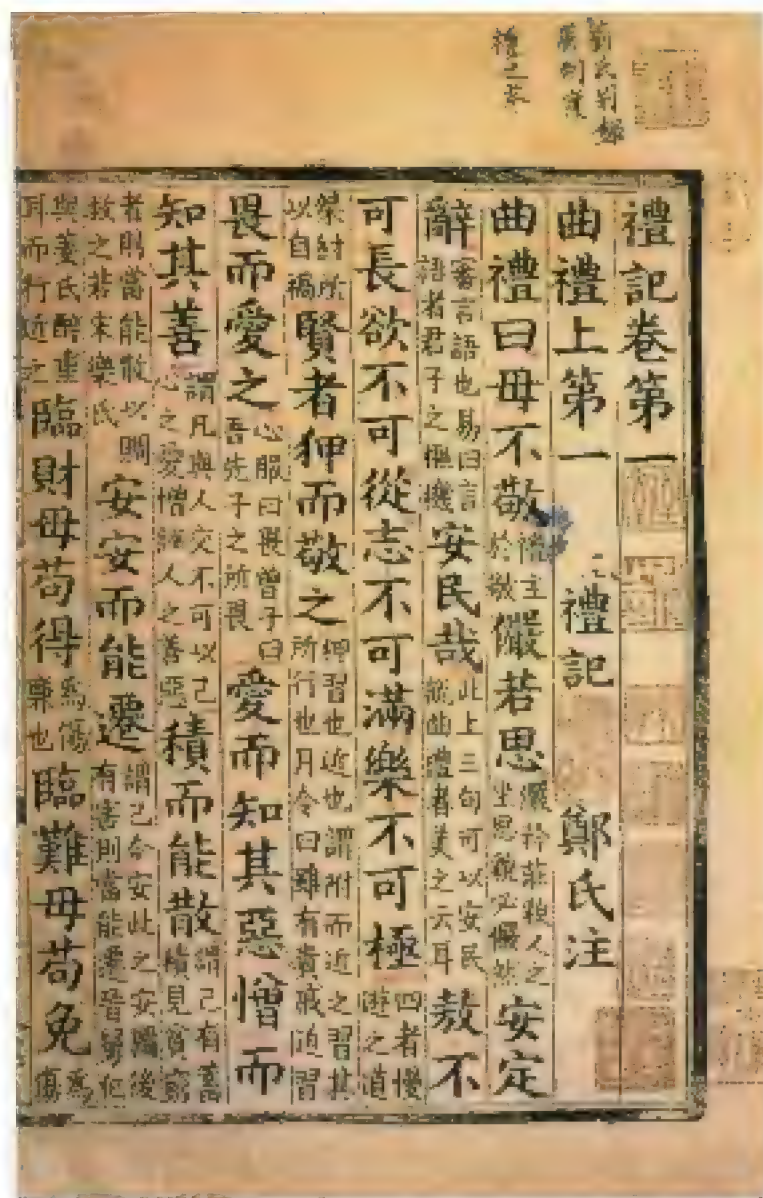 禮記卷第一
曲禮上第一 禮記 鄭氏注
曲禮曰毋不敬禮主於敬儼若思儼矜莊貌人之坐思貌必儼然安定
辭審言語也易曰言語者君子之樞機安民哉此上三句可以安民說曲禮者美之云耳敖不
可長欲不可從志不可滿樂不可極四者慢遊之道
桀紂所以自禍賢者狎而敬之狎習也近也謂附而近之習其所行也月令曰雖有貴戚近習
畏而愛之心服曰畏曾子曰吾先子之所畏愛而知其惡憎而
知其善謂凡與人交不可以己心之愛憎誣人之善惡積而能散謂己有蓄積見貧窮
者則當能散以賙救之若宋樂氏安安而能遷謂己今安此之安圖後有害則當能遷晉舅犯
與姜氏醉重耳而行近之臨財毋苟得為傷廉也臨難毋苟免為傷